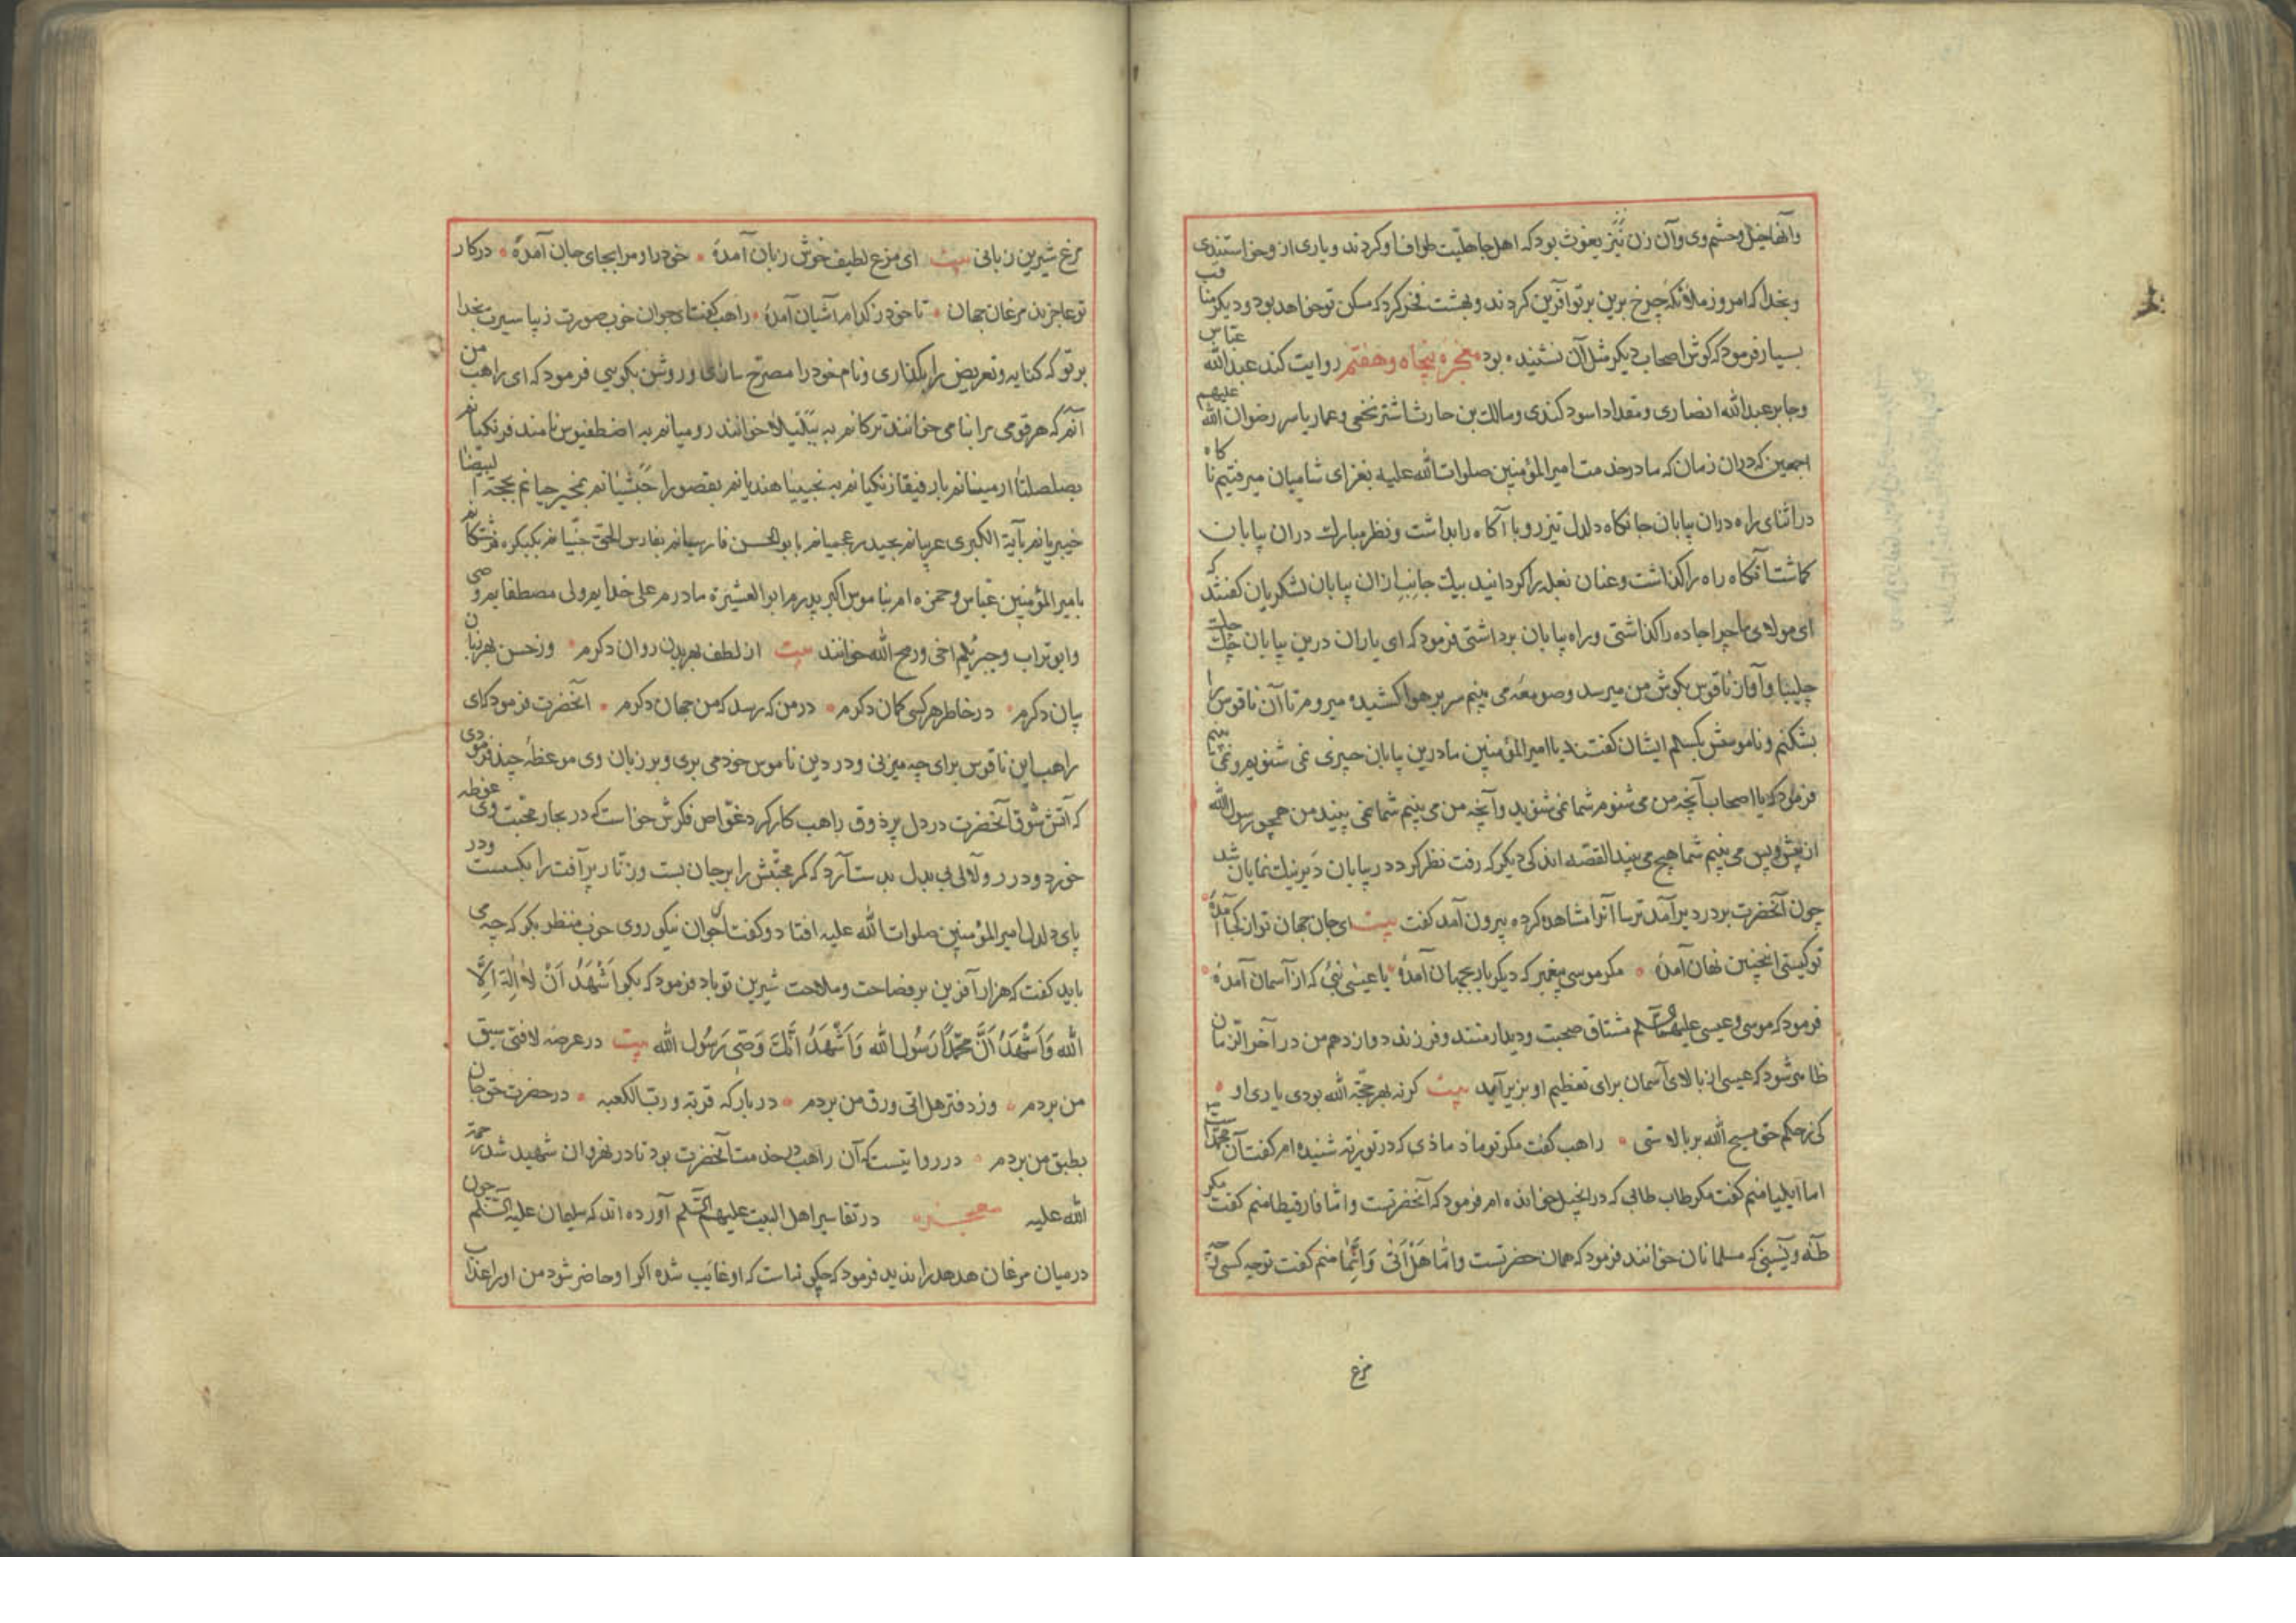 وآنها خیل وحشم وی وآن زن نیز یغوث بود که اهل جاهلیت طواف او کردند ویاری ازو خواستندی
وبخدا که امروز ملائکه چرخ برین برتو آفرین کردند وبهشت فخر کرد که مسکن تو خواهد بود ودیکر مناقب
بسیار فرمود که کوش اصحاب دیکر مثل آن نشنیده بود معجزه پنجاه وهفتم روایت کند عبدالله عباس
وجابر عبدالله انصاری ومقداد اسود کندی ومالک بن حارث اشتر نخعی وعمار یاسر رضوان الله علیهم
اجمعین که دران زمان که ما در خدمت امیرالمؤمنین صلوات الله علیه بغزای شامیان میرفتیم ناکاه
در اثنای راه دران بیابان جانکاه دلدل تیزرو با آکاه را بداشت ونظر مبارک دران بیابان
کماشت آنکاه راه را کذاشت وعنان بغله را کردانید بیک جانب ازان بیابان لشکریان کفتند که
ای مولای ما چرا جاده را کذاشتی وراه بیابان برداشتی فرمود که ای یاران درین بیابان
چلیپا وآواز ناقوس بکوش من میرسد وصومعه می بینم سر بر هوا کشیده میروم تا آن ناقوس را
بشکنم وناموسش بکسلم ایشان کفتند یا امیرالمؤمنین ما درین بیابان چیزی نمی شنویم ونمی بینیم
فرمود که یا اصحاب آنچه من می شنوم شما نمی شنوید وآنچه من می بینم شما نمی بینید من همچو رسول الله
از پیش وپس می بینم شما هیچ می بینید القصه اندکی دیکر که رفت نظر کرد در بیابان دیر نیک نمایان شد
چون آنحضرت بر در دیر آمد ترسا آنرا مشاهده کرده بیرون آمد کفت بیت ای جان جهان تو از کجا آمدهٔ
تو کیستی اینچنین نهان آمدهٔ مکر موسی پیغمبر که دیکر بار بجهان آمدهٔ یا عیسی نبیٔ که از آسمان آمدهٔ
فرمود که موسی وعیسی علیهما السلم مشتاق صحبت ودیدار منند وفرزند دوازدهم من در آخر الزمان
ظاهر شود که عیسی از بالای آسمان برای تعظیم او بزیر آید بیت کرنه بهر حجة الله بودی یاری او
کی ز حکم حق مسیح الله بر بالاستی راهب کفت مکر تو ماد مادی که در توریة شنیده ام کفت آن محمد است
اما ایلیا منم کفت مکر طاب طابی که در انجیل خوانده ام فرمود که آنحضرتست واما فارقیطا منم کفت مکر
طه ویسینی که مسلمانان خوانند فرمود که همان حضرتست واما هل اتی وانما منم کفت تو چه کسی
مرغ
مرغ شیرین زبانی بیت ای مرغ لطیف خوش زبان آمدهٔ خود را و مرا بجای جان آمدهٔ در کار
تو عاجزند مرغان جهان تا خود ز کدام آشیان آمدهٔ راهب کفت ای جوان خوب صورت زیبا سیرت بخدا
بر تو که کنایه وتعریض را بکذاری ونام خود را مصرح سازی وروشن بکویی فرمود که ای راهب من
آنم که هر قومی مرا بنامی خوانند ترکانم به بیلتیلا خوانند رومیانم به اضطفیوس نامند فرنکیانم
بصلصلتا ارمینانم بارفیقا زنکیانم به نجیبیا هندیانم بقصورا حبشیانم بمخیر جیانم بحجة البیضا
خیبریانم بآیة الکبری عربیانم بحیدر عجمیانم بابوالحسن فارسیانم بفارس الحق جنیانم بکبکره فرشتکانم
بامیر المؤمنین عباس وحمزه ام بناموس اکبر پدرم ابو العشیرة مادرم علی خدایم ولی مصطفایم وصی
وابو تراب وجبرئیلم اخی وروح الله خوانند بیت از لطف بهر بدن روان دکرم وز حسن بهر زبان
بیان دکرم در خاطر هر کسی کمان دکرم در من که رسد که من جهان دکرم آنحضرت فرمود که ای
راهب این ناقوس برای چه میزنی ودر دین ناموس خود می بری وبر زبان وی موعظهٔ چند فرمودی
که آتش شوق آنحضرت در دل پر ذوق راهب کار کرد غواص فکرش خواست که در بحار محبت وی غوطه
خورد ودر رو لآلی بی بدل بدست آرد که کمر محبتش را بر جان بست وزنار پر آفت را بکسست ودر
پای دلدل امیرالمؤمنین صلوات الله علیه افتاد وکفت ای جوان نیکو روی خوب منظر بکو که چه می
باید کفت که هزار آفرین بر فصاحت وملاحت شیرین تو باد فرمود که بکو اَشْهَدُ اَنْ لا اِلٰهَ اِلَّا
الله وَاَشْهَدُ اَنَّ مُحَمَّدًا رَسُولُ الله وَاَشْهَدُ اَنَّكَ وَصِیُّ رَسُولِ الله بیت در عرصه لافتی سبق
من بردم وز دفتر هل اتی ورق من بردم در بارکه قربه ورب الکعبه در حضرت حق جان
بطبق من بردم در روایتست که آن راهب در خدمت آنحضرت بود تا در نهروان شهید شد رحمة
الله علیه معجزه در تفاسیر اهل البیت علیهم السلم آورده اند که سلیمان علیه السلم چون
در میان مرغان هدهد را ندید فرمود که چکونه است که او غایب شده اکر او حاضر شود من او را عذاب